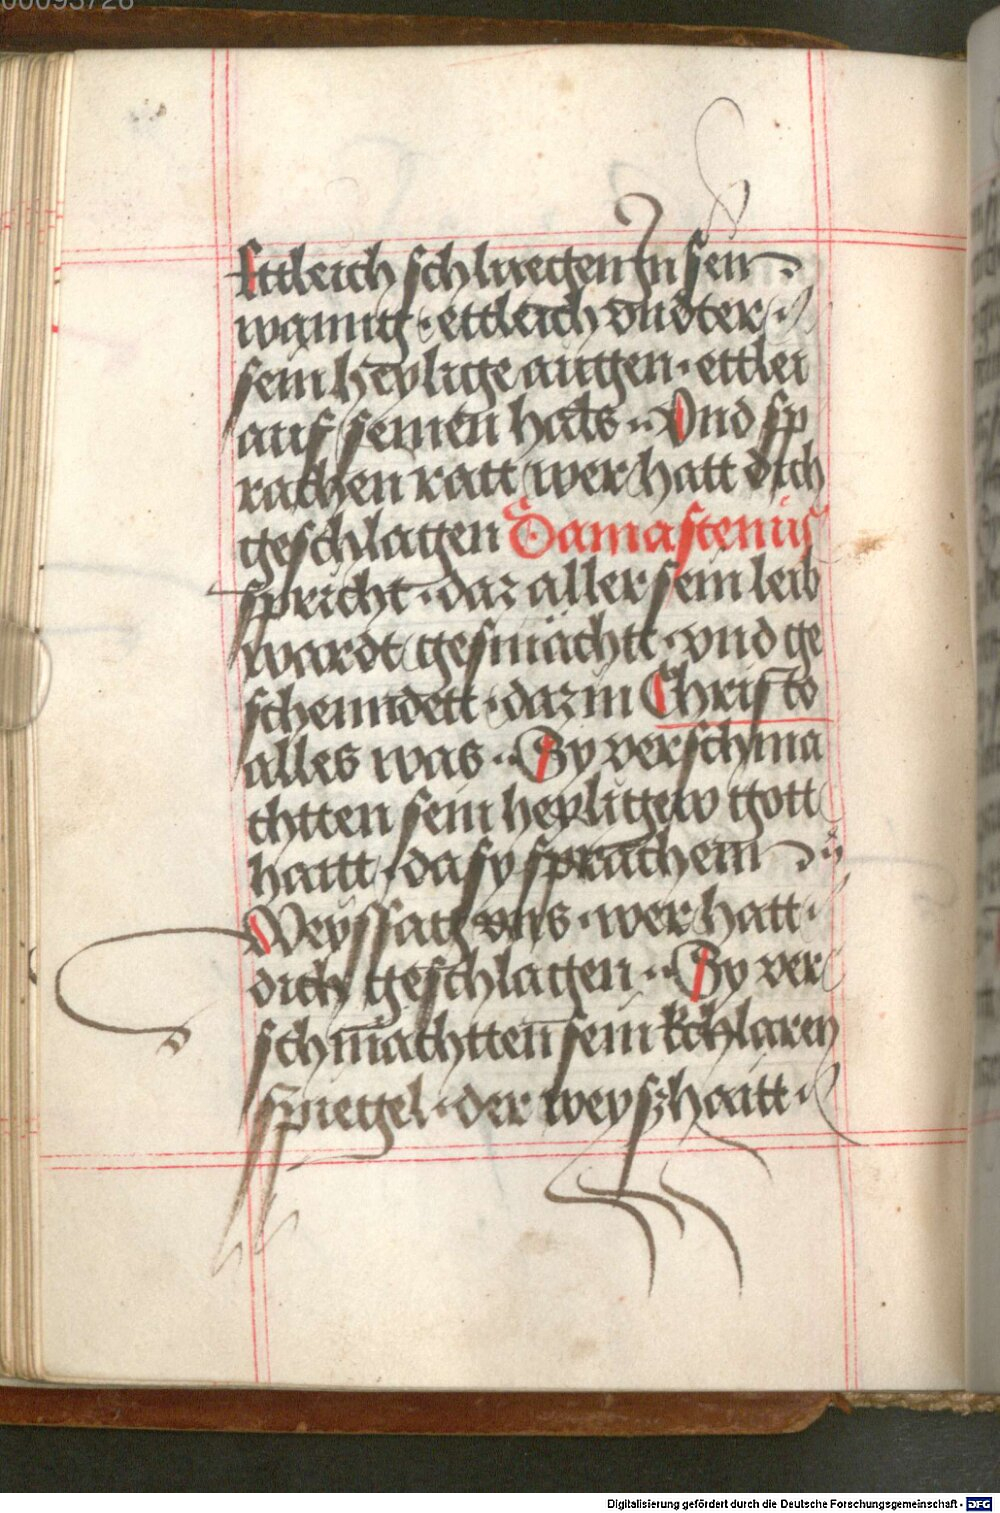 00093726
Ettleich schluegen In sein
wanng · ettleich vndter ·
sein heylige augen · ettlei
auf seinen hals ·· Vnd sp
rachen ratt wer hatt dich
geschlagen Damascenus
spricht · daz aller sein leib
wardt gesmächtt · vnd ge
schenndett · daz in Christo
alles was ·· Sy verschma
chtten sein heyligew gott
haitt · da sy sprachenn ··
Weyssag vns · wer hatt ·
dich geschlagen ·· Sy ver
schmachtten sein kchlaren
spiegel · der weyszhaitt ·
Digitalisierung gefördert durch die Deutsche Forschungsgemeinschaft - DFG